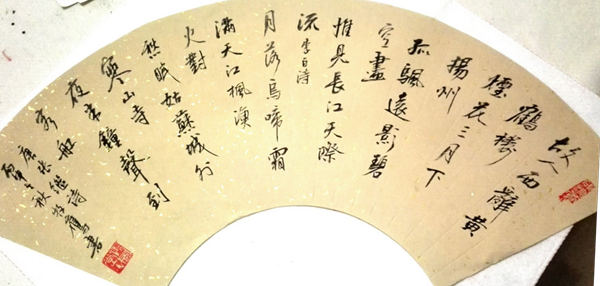 故人西辭黄
鶴樓
煙花三月下
揚州
孤颿遠影碧
空盡
惟見長江天際
流 李白詩
月落烏啼霜
滿天江楓漁
火對
愁眠姑蘇城外
寒山寺
夜半鐘聲到
客船
唐張繼詩
丙申秋書